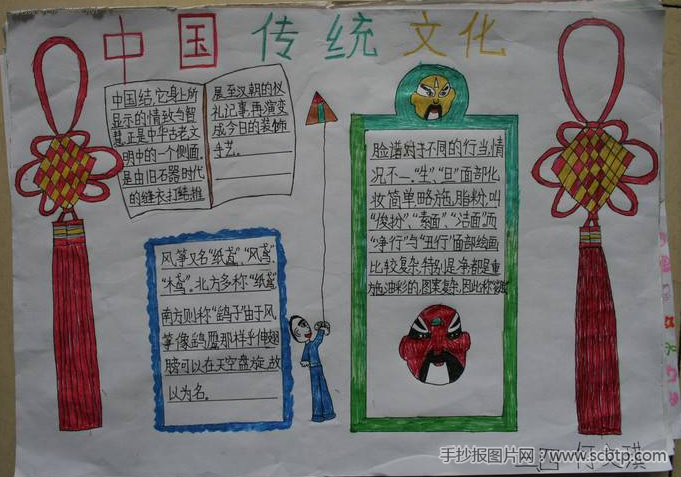 中国传统文化
中国结,它身上所
显示的情致与智
慧,正是中华古老文
明中的一个侧面。
是由旧石器时代
的缝衣打结,推
展至汉朝的仪
礼记事,再演变
成今日的装饰
手艺。
风筝又名"纸鸢"、"风鸢"、
"木鸢"。北方多称"纸鸢"
南方则称"鹞子"由于风
筝像鹞鹰那样乎伸翅
膀可以在天空盘旋,故
以为名。
脸谱对于不同的行当,情
况不一。"生"、"旦"面部化
妆简单,略施脂粉,叫
"俊扮"、"素面"、"洁面"。而
"净行"与"丑行"面部绘画
比较复杂,特别是净都是重
施油彩的,图案复杂,因此称
手抄报图片网:www.scbtp.com